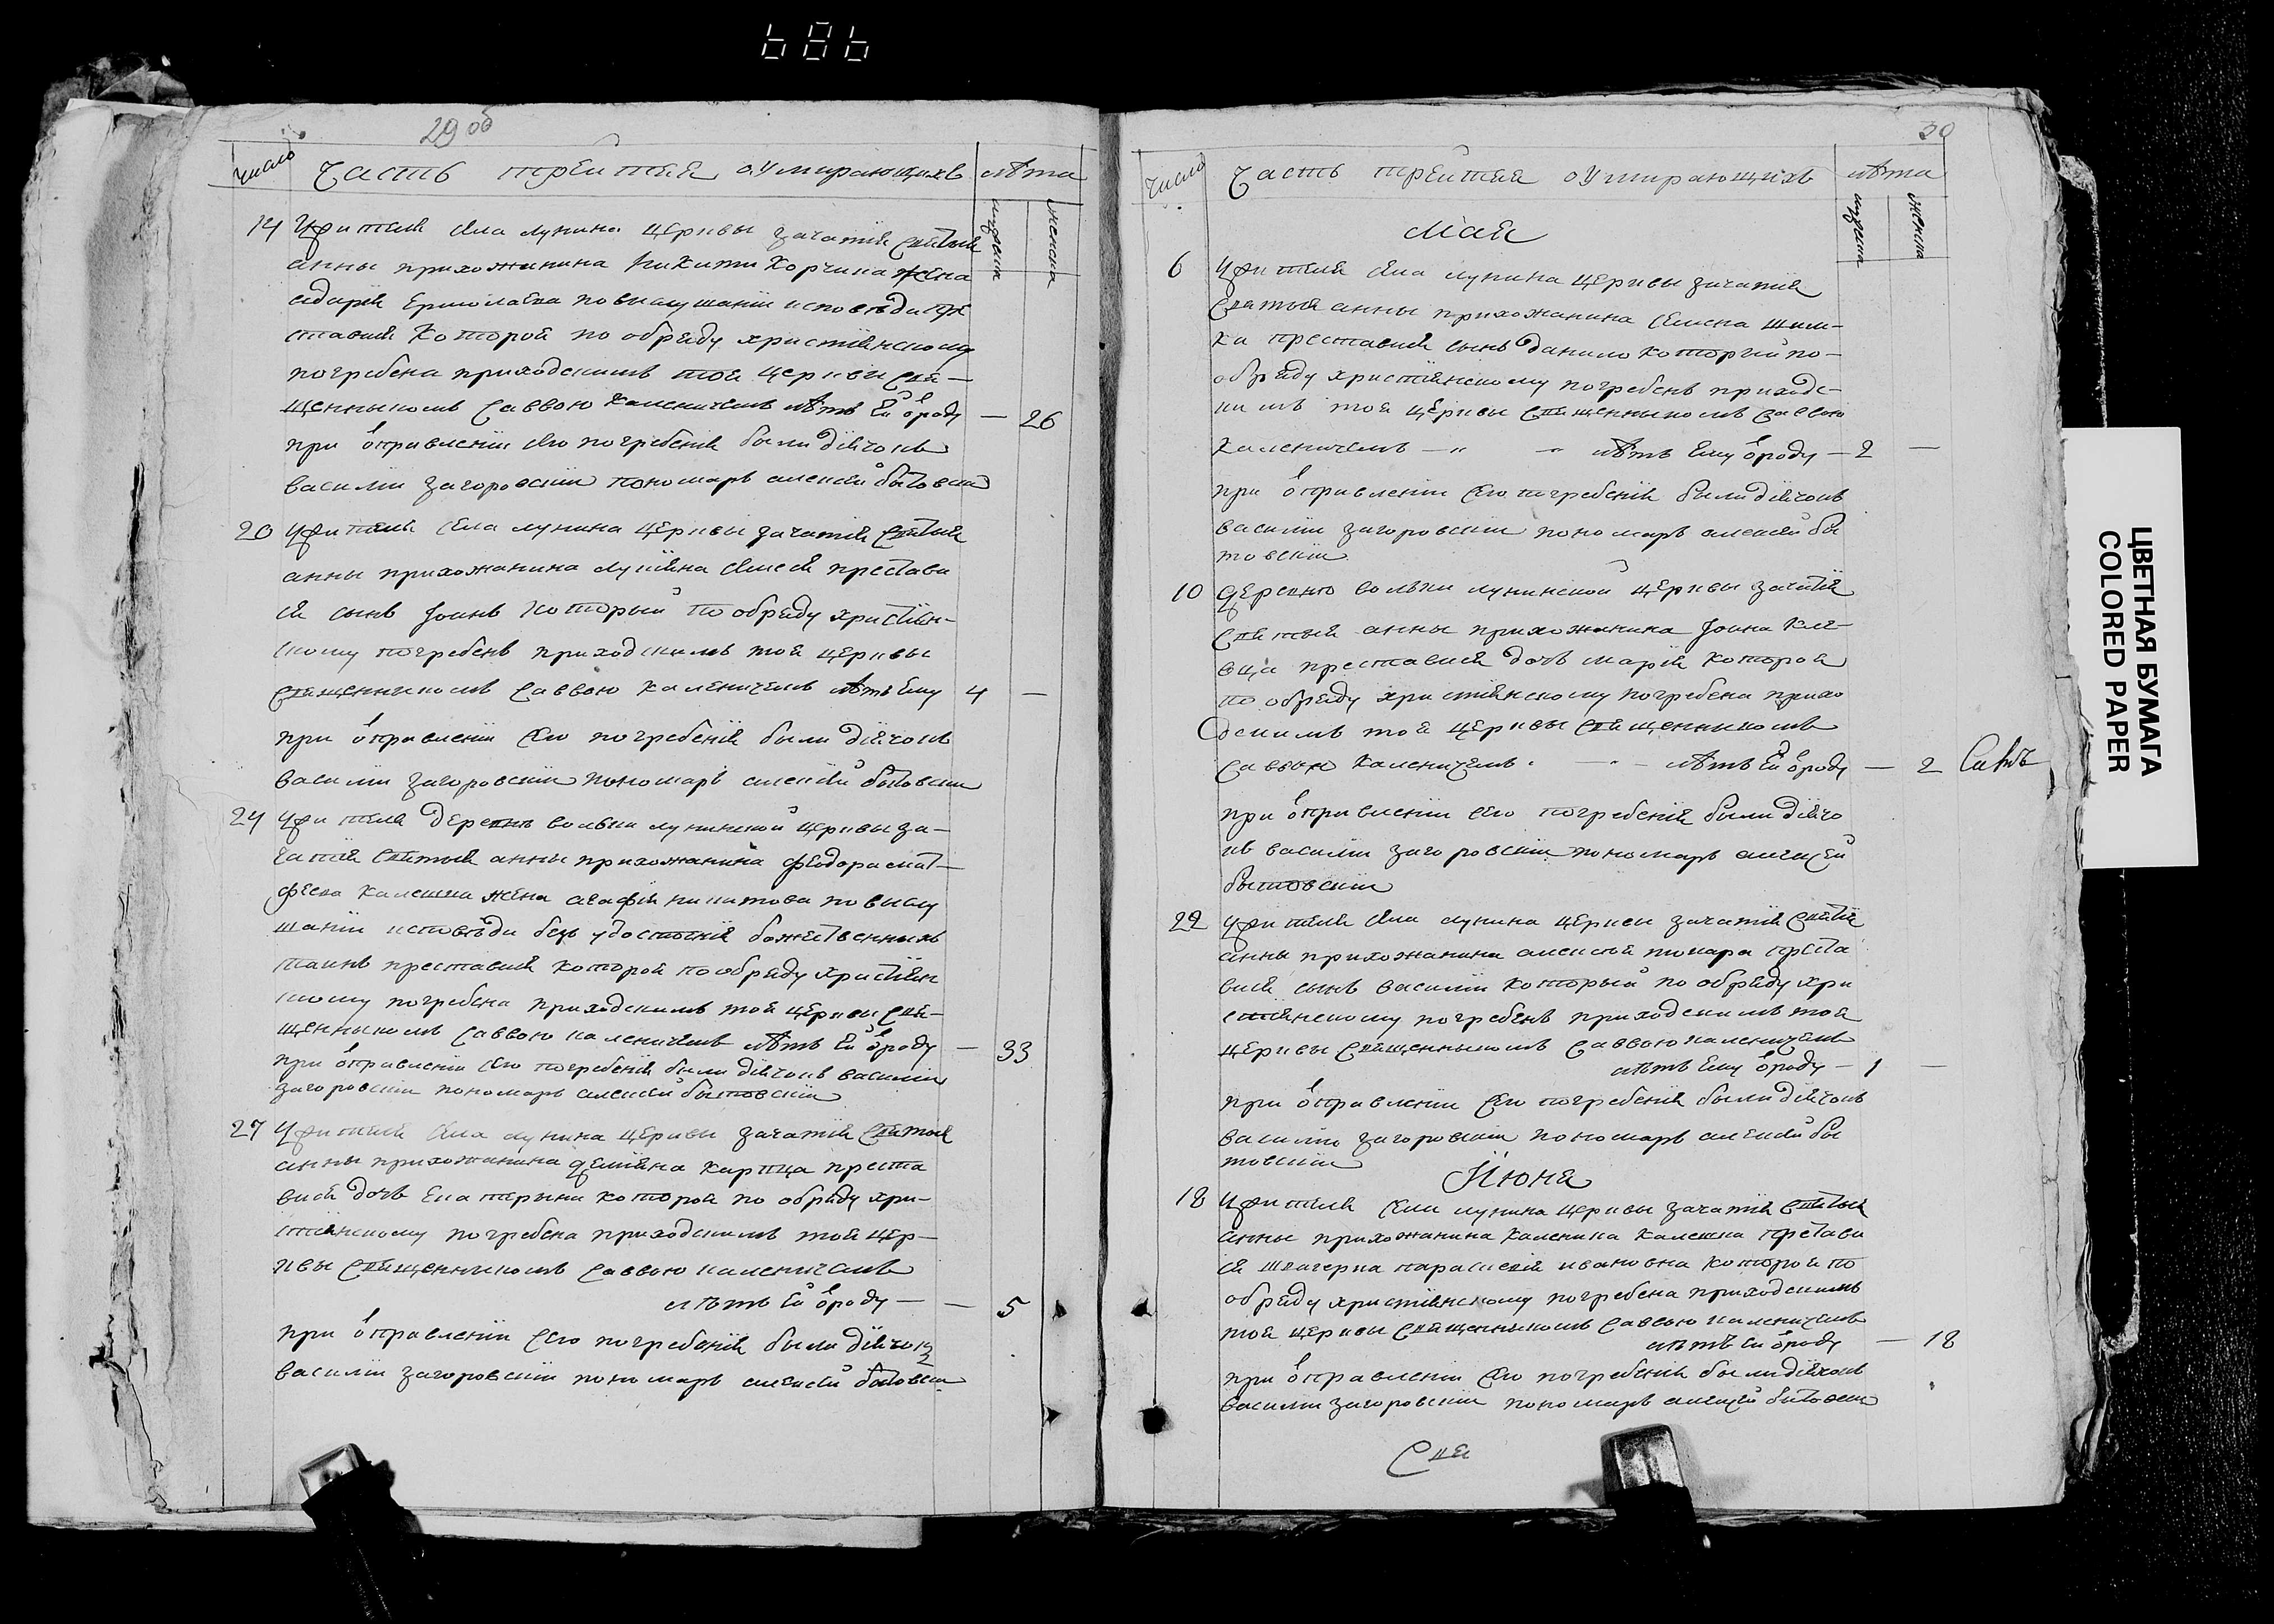 686
29 об
число
Часть третяя оумирающихъ
лѣта
мужеска
женска
14 Жителя села лунина церквы зачатия святыя
анны прихожанина Никити Корчина жена
евдокия Ермолаева по выслушании исповѣди пре
ставися которая по обряду християнскому
погребена приходскимъ тоя церквы свя-
щенникомъ Саввою Каленичемъ лѣтъ Ей ѿроду — 26
при ѿправлении сего погребения были дiячокъ
василии загоровскии пономарь алексей бытовский
20 Жителя села лунина церквы зачатия святыя
анны прихожанина престави
ся сынъ Iоанъ который по обряду християн-
скому погребенъ приходскимъ тоя церквы
священникомъ Саввою каленичемъ лѣтъ Ему 4 —
при ѿправлении сего погребения были дiячокъ
василии загоровскии пономарь алексей бытовскии
24 Жителя деревнѣ волвки лунинской церквы за-
чатия святыя анны прихожанина феодора мат-
феева калешка жена агафия никитова по выслу
шании исповѣди безъ удостоения божественныхъ
таинъ преставися которая по обряду християн
скому погребена приходскимъ тоя церквы свя-
щенникомъ Саввою каленичемъ лѣтъ Ей ѿроду — 33
при ѿправлении сего погребения были дiячокъ василии
загоровскии пономарь алексей бытовскии
27 Жителя села лунина церквы зачатия святыя
анны прихожанина демияна карпца преста
вися дочь Екатерина которая по обряду хри-
стиянскому погребена приходскимъ тоя цер-
квы священникомъ Саввою каленичемъ
лѣтъ Ей ѿроду — — 5
при ѿправлении сего погребения были дiячокъ
василии загоровскии пономарь алексей бытовски
30
число
Часть третяя оумирающихъ
лѣта
мужеска
женска
Мая
6 Жителя села лунина церквы зачатия
святыя анны прихожанина Семена
ка преставися сынъ данило которий по-
обряду християнскому погребенъ приходс-
кимъ тоя церквы священникомъ Саввою
Каленичемъ — " — " лѣтъ Ему ѿроду — 2 —
при ѿправлении сего погребения были дiячокъ
василии загоровскии пономарь алексей бы
товскии
10 деревнѣ волвки лунинской церквы зачатия
святыя анны прихожанина Iоана
вца преставися дочь мария которая
по обряду християнскому погребена прихо
дскимъ тоя церквы священникомъ
Саввою Каленичемъ . — " — лѣтъ Ей ѿроду — 2
при ѿправлении сего погребения были дiячо
къ василии загоровскии пономарь алексей
бытовскии
22 Жителя села лунина церквы зачатия святыя
анны прихожанина алексея токара преста
вися сынъ василии который по обряду хри
стиянскому погребенъ приходскимъ тоя
церквы священникомъ Саввою каленичемъ
лѣтъ Ему ѿроду — 1 —
при ѿправлении сего погребения были дiячокъ
василии загоровскии пономарь алексей бы
товскии
Июня
18 Жителя села лунина церквы зачатия святыя
анны прихожанина каленика калешка престави
ся швагерка параскевия ивановна которая по
обряду християнскому погребена приходскимъ
тоя церквы священникомъ Саввою каленичемъ
лѣтъ Ей ѿроду — 18
при ѿправлении сего погребения были дiячокъ
василии загоровскии пономарь алексей бытовски
Свя
ЦВЕТНАЯ БУМАГА
COLORED PAPER